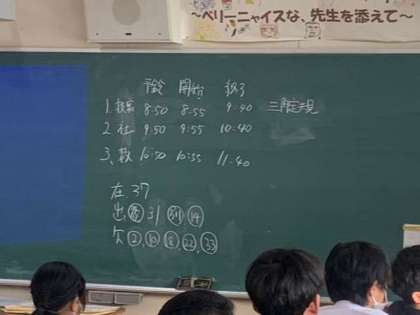 〜ベリーニャイスな、先生を添えて〜
予鈴 開始 終了
1. 8:50 8:55 9:40
2. 社 9:50 9:55 10:40
3. 数 10:50 10:55 11:40
在 37
出 31 別 14
欠 2 22 33